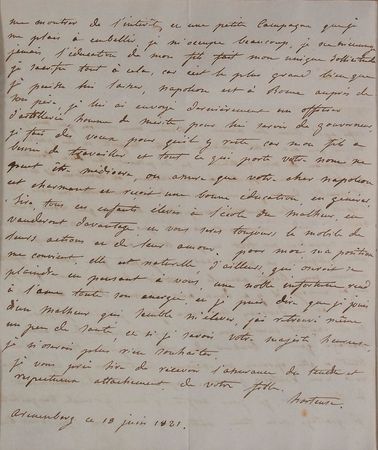 me montrer de l'interet, et une petite Campagne que je
me plais à embellir, je m'occupe beaucoup, je ne m'ennuye
jamais, l'éducation de mon fils fait mon unique sollicitude
je sacrifie tout à cela, car c'est le plus grand bien que
je puisse lui laisser, napoleon est à Rome auprès de
son père, je lui ai envoyé dernièrement un officier
d'artillerie homme de merite, pour lui servir de gouverneur,
je fais des vœux pour qu'il y reste, car mon fils a
besoin de travailler et tout ce qui porte votre nom ne
peut être médiocre, on assure que votre cher napoleon
est charmant et reçoit une bonne éducation, en général,
Sire, tous ces enfants élevés à l'école du malheur, en
vaudront davantage et vous serez toujours le mobile de
leurs actions et de leur amour. pour moi ma position
me convient, elle est naturelle, d'ailleurs, qui oserait se
plaindre en pensant à vous, une noble infortune rend
à l'ame toute son energie et je puis dire que je jouis
d'un malheur qui semble m'elever, j'ai retrouvé même
un peu de santé, et si je savois votre majesté heureuse,
je n'oserois plus rien souhaiter.
je vous prie Sire de recevoir l'assurance du tendre et
respectueux attachement de votre fille.
hortense.
Arenenberg ce 18 juin 1821.